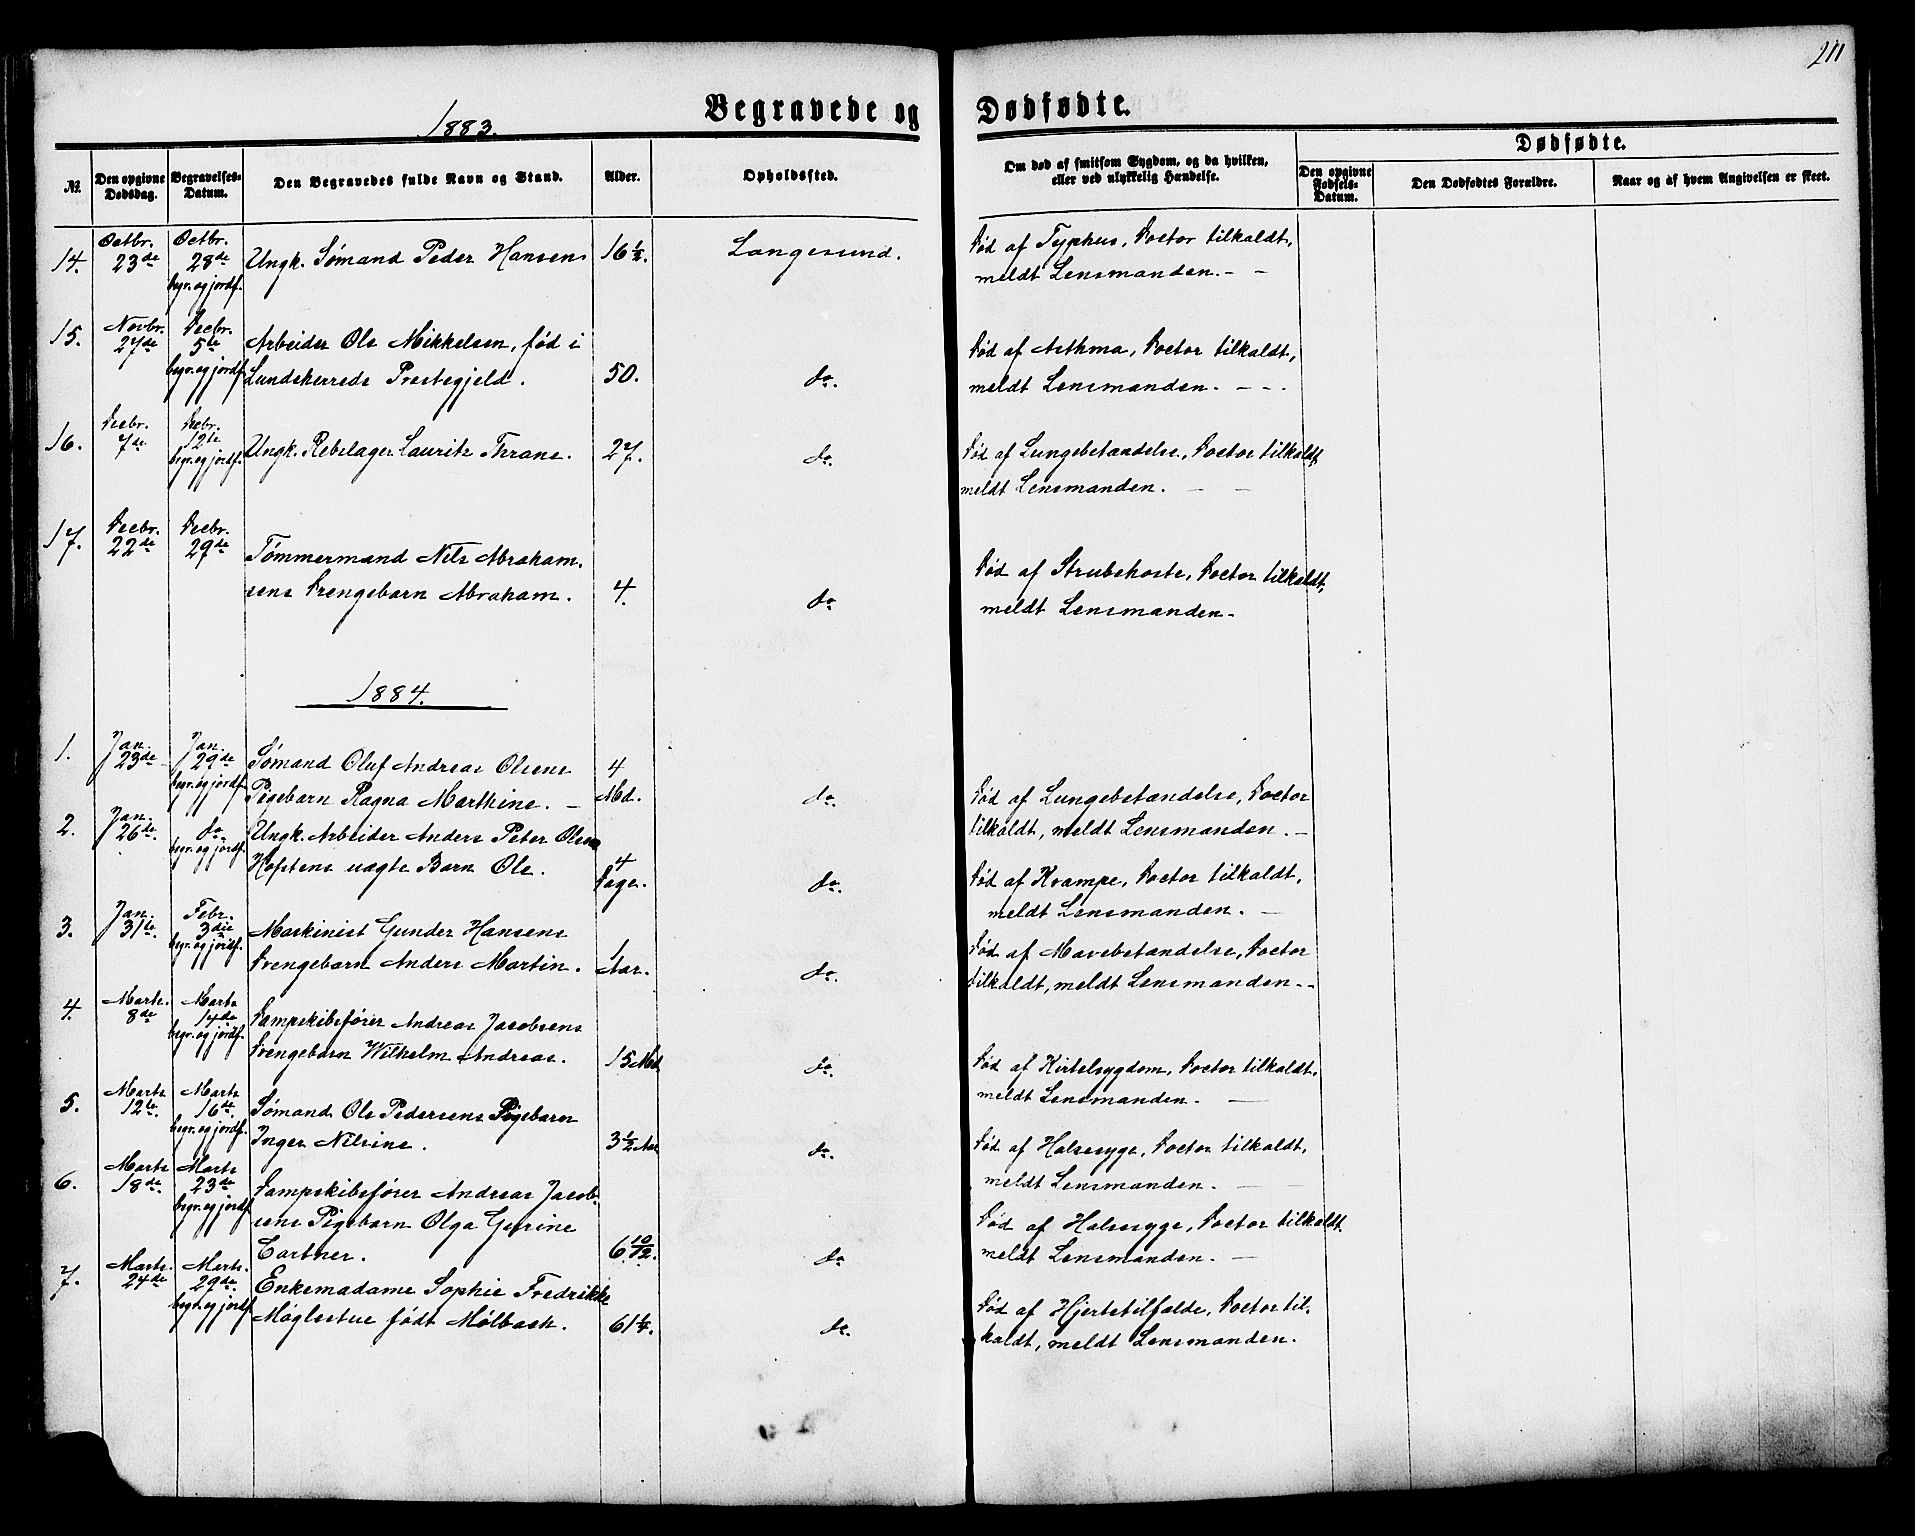 211
1883.
Begravede og Dødfødte.
№
Den opgivne Dødsdag.
Begravelses-Datum.
Den Begravedes fulde Navn og Stand.
Alder.
Opholdssted.
Om død af smitsom Sygdom, og da hvilken,
eller ved ulykkelig Hændelse.
Dødfødte.
Den opgivne Fødsels-Datum.
Den Dødfødtes Forældre.
Naar og af hvem Angivelsen er skeet.
14. Octbr. 23de Octbr. 28de begr. og jordf. Ungk. Sømand Peder Hansens 16 1/2. Langesund. Død af Typhus, Doctor tilkaldt,
meldt Lensmanden. - -
15. Novbr. 27de Decbr. 5te begr. og jordf. Arbeider Ole Mikkelsen, fød i
Lundeherreds Prestegjeld. 50. do. Død af Asthma, Doctor tilkaldt,
meldt Lensmanden. - - -
16. Decbr. 7de Decbr. 12te begr. og jordf. Ungk. Rebslager Lauritz Thrane. 27. do. Død af Lungebetændelse, Doctor tilkaldt,
meldt Lensmanden. - -
17. Decbr. 22de Decbr. 29de Tømmermand Nils Abraham-
sens Drengebarn Abraham. 4. do Død af Strubehoste, Doctor tilkaldt,
meldt Lensmanden -
1884.
1. Jan. 23de Jan. 29de begr. og jordf. Sømand Oluf Andreas Olsens
Pigebarn Ragna Marthine. - 4 Md. do. Død af Lungebetændelse, Doctor
tilkaldt, meldt Lensmanden. -
2. Jan. 26de do begr. og jordf. Ungk. Arbeider Anders Peter Olsen
Hofstens uægte Barn Ole. 4 Dage. do. Død af Krampe, Doctor tilkaldt,
meldt Lensmanden. -
3. Jan. 31te Febr. 3die begr. og jordf. Maskinist Gunder Hansens
Drengebarn Anders Martin. 1 Aar. do. Død af Mavebetændelse, Doctor
tilkaldt, meldt Lensmanden - -
4. Marts. 8de Marts 14de begr. og jordf. Dampskibsfører Andreas Jacobsens
Drengebarn Wilhelm Andreas. 15 Md do. Død af Kirtelsygdom, Doctor tilkaldt.
meldt Lensmanden. -
5. Marts 12te. Marts 16de. begr. og jordf. Sømand Ole Pedersens Pigebarn
Inger Nilsine. 3 1/2 Aar do. Død af Halssyge, Doctor tilkaldt,
meldt Lensmanden. - -
6. Marts 18de. Marts 23de. begr. og jordf. Dampskibsfører Andreas Jacob-
sens Pigebarn Olga Gurine
Cortner. 6 10/12. do Død af Halssyge, Doctor tilkaldt.
meldt Lensmanden. -
7. Marts. 24de Marts. 29de. begr. og jordf. Enkemadame Sophie Fredrikke
Møglestue født Mølbach. 61 1/2. do. Død af Hjertetilfælde, Doctor til-
kaldt, meldt Lensmanden.